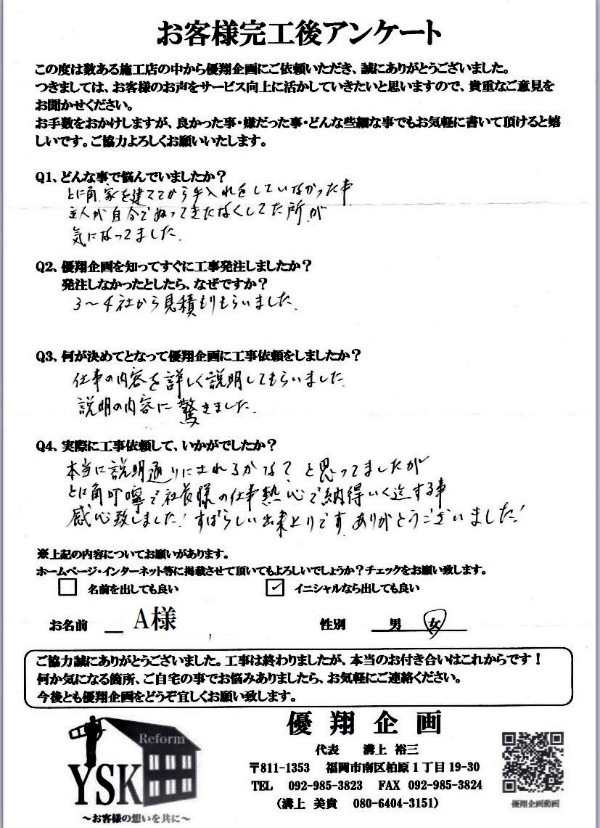 お客様完工後アンケート
この度は数ある施工店の中から優翔企画にご依頼いただき、誠にありがとうございました。
つきましては、お客様のお声をサービス向上に活かしていきたいと思いますので、貴重なご意見を
お聞かせください。
お手数をおかけしますが、良かった事・嫌だった事・どんな些細な事でもお気軽に書いて頂けると嬉
しいです。ご協力よろしくお願いいたします。
Q1、どんな事で悩んでいましたか？
とに角 家を建ててから手入れをしていなかった事
主人が自分でぬってきたなくしてた所が
気になってました。
Q2、優翔企画を知ってすぐに工事発注しましたか？
発注しなかったとしたら、なぜですか？
3〜4社から見積もりもらいました。
Q3、何が決めてとなって優翔企画に工事依頼をしましたか？
仕事の内容を詳しく説明してもらいました
説明の内容に驚きました。
Q4、実際に工事依頼して、いかがでしたか？
本当に説明通りにされるかな？と思ってましたが
とに角叮嚀で社長様の仕事熱心で納得いく迄する事
感心致しました！すばらしい出来上りです。ありがとうございました！
※上記の内容についてお願いがあります。
ホームページ・インターネット等に掲載させて頂いてもよろしいでしょうか？チェックをお願い致します。
□ 名前を出しても良い ☑ イニシャルなら出しても良い
お名前 A様 性別 男 女
ご協力誠にありがとうございました。工事は終わりましたが、本当のお付き合いはこれからです！
何か気になる箇所、ご自宅の事でお悩みありましたら、お気軽にご連絡ください。
今後とも優翔企画をどうぞ宜しくお願い致します。
Reform
YSK
〜お客様の想いを共に〜
優翔企画
代表 溝上 裕三
〒811-1353 福岡市南区柏原1丁目19-30
TEL 092-985-3823 FAX 092-985-3824
（溝上 美貴 080-6404-3151）
優翔企画動画